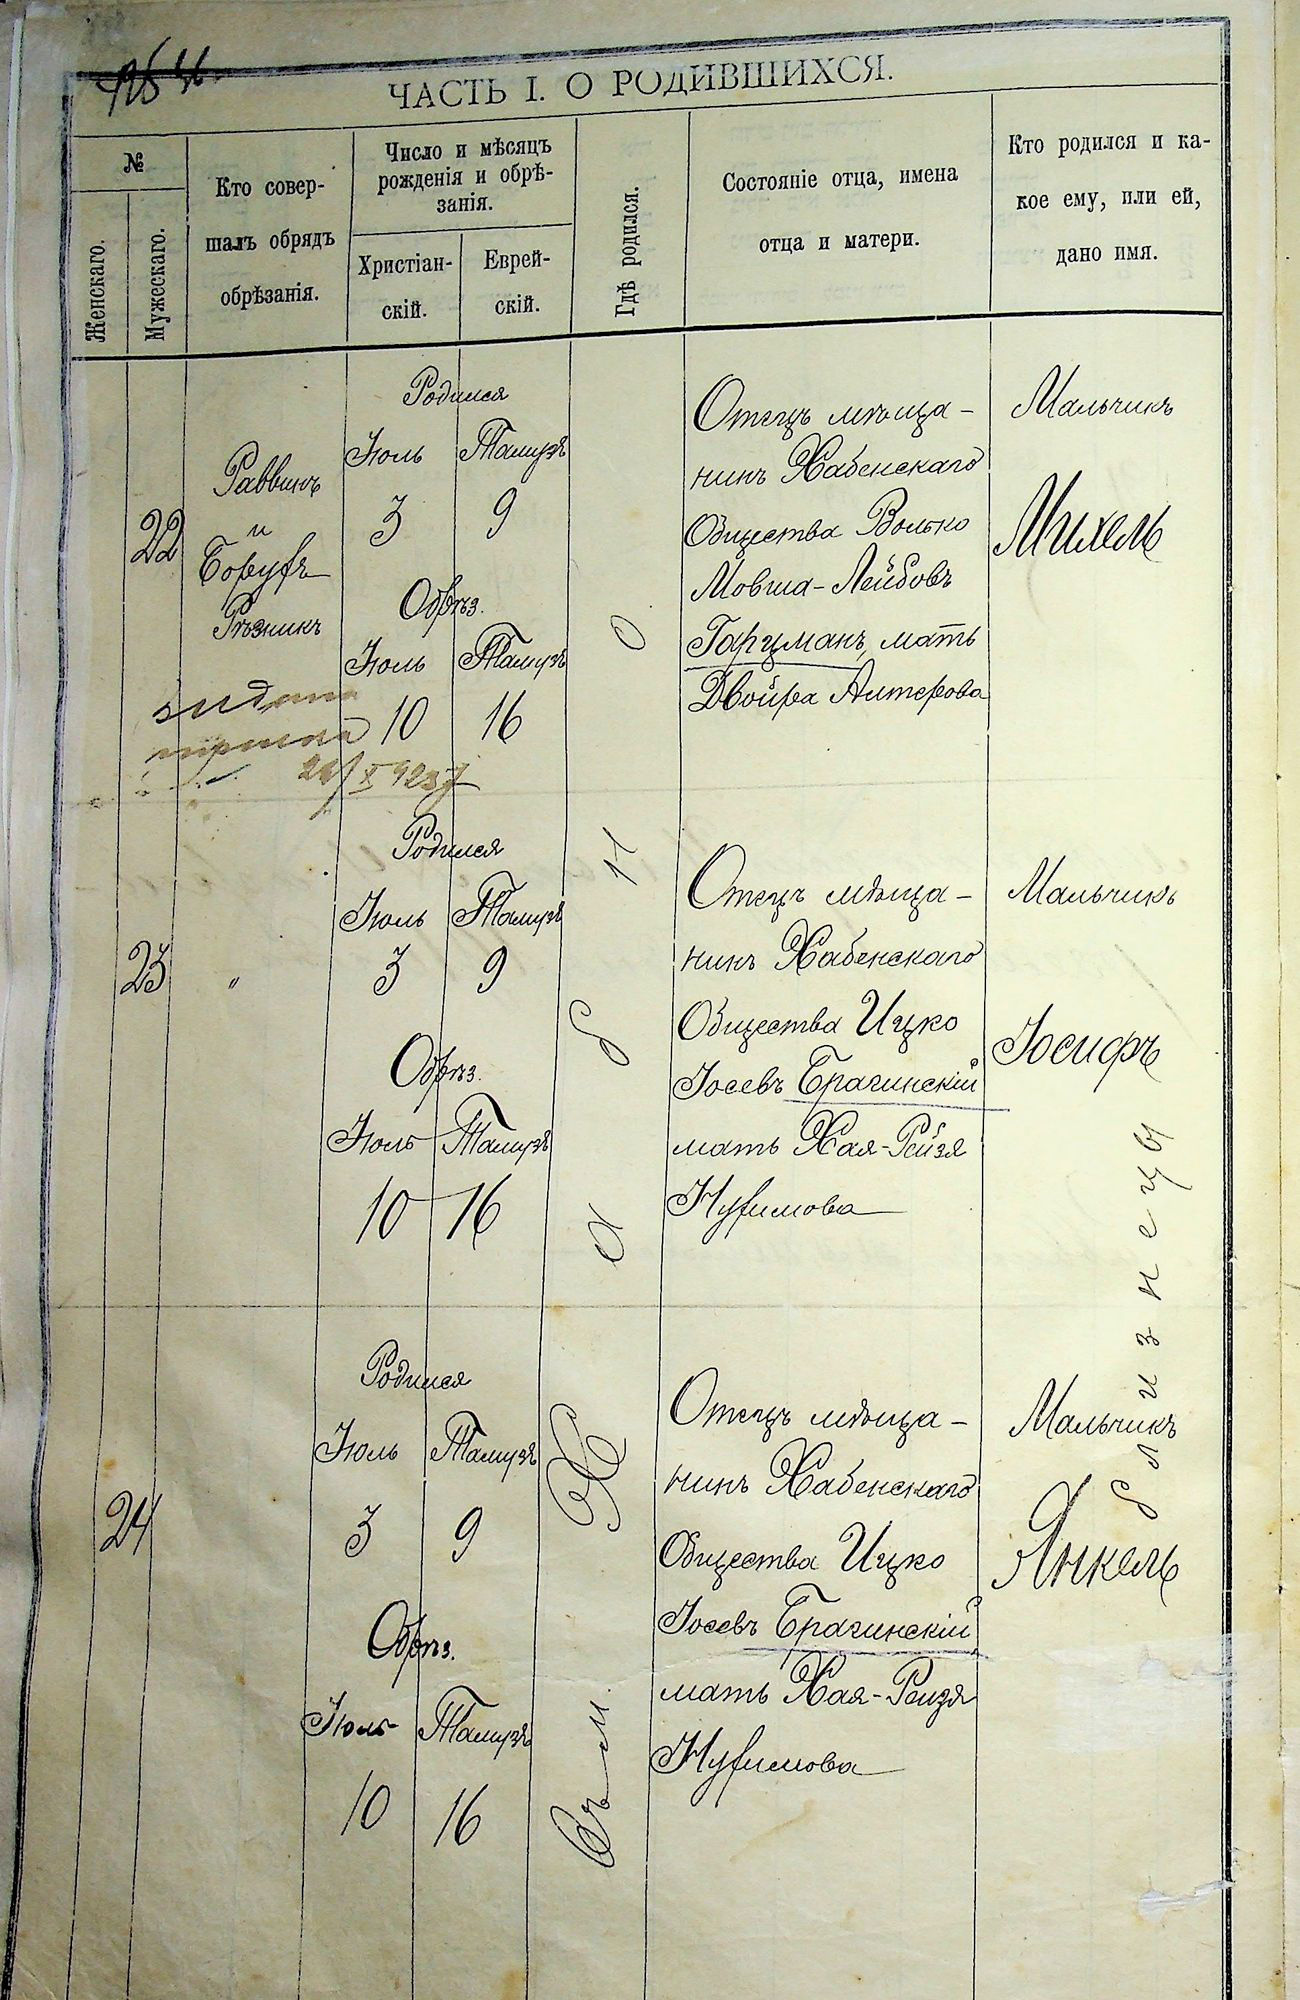 ЧАСТЬ I. О РОДИВШИХСЯ.
№
Женскаго.
Мужескаго.
Кто совер-
шалъ обрядъ
обрѣзанія.
Число и мѣсяцъ
рожденія и обрѣ-
занія.
Христіан-
скій.
Еврей-
скій.
Гдѣ родился.
Состояніе отца, имена
отца и матери.
Кто родился и ка-
кое ему, или ей,
дано имя.
22
Раввинъ
и
Борухъ
Рѣзникъ
Родился
Іюль Тамузъ
3 9
Обрѣз.
Іюль Тамузъ
10 16
Отецъ мѣща-
нинъ Хабенскаго
Общества Волько
Мовша-Лейбовъ
Гарцманъ, мать
Двойра Алтерова
Мальчикъ
Михель
выдана
23
"
Родился
Іюль Тамузъ
3 9
Обрѣз.
Іюль Тамузъ
10 16
Отецъ мѣща-
нинъ Хабенскаго
Общества Ицко
Іосевъ Брагинскій
мать Хая-Рейзя
Нухимова
Мальчикъ
Іосифъ
24
Родился
Іюль Тамузъ
3 9
Обрѣз.
Іюль Тамузъ
10 16
Отецъ мѣща-
нинъ Хабенскаго
Общества Ицко
Іосевъ Брагинскій
мать Хая-Рейзя
Нухимова
Мальчикъ
Янкель
близнецы
Въ м. Хабно